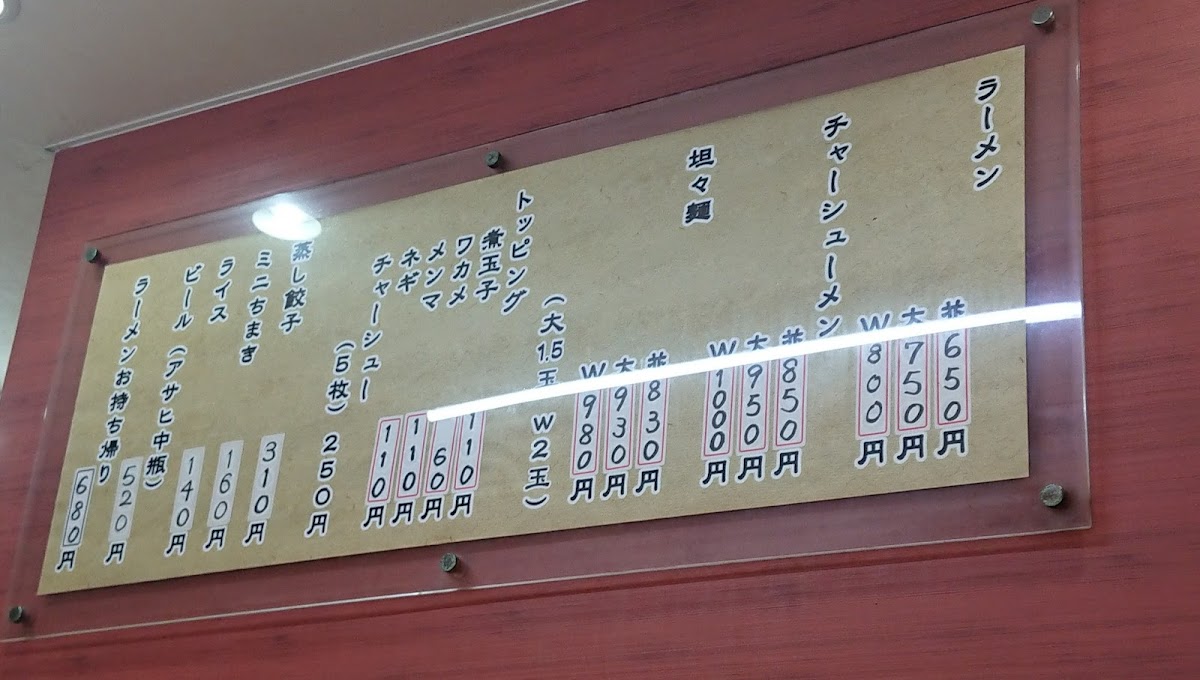 ラーメン
並650円
大750円
W800円
チャーシューメン
並850円
大950円
W1000円
坦々麺
並830円
大930円
W980円
(大1.5玉 W2玉)
トッピング
煮玉子 110円
ワカメ 60円
メンマ 110円
ネギ 110円
チャーシュー(5枚) 250円
蒸し餃子 310円
ミニちまき 160円
ライス 140円
ビール(アサヒ中瓶) 520円
ラーメンお持ち帰り 680円